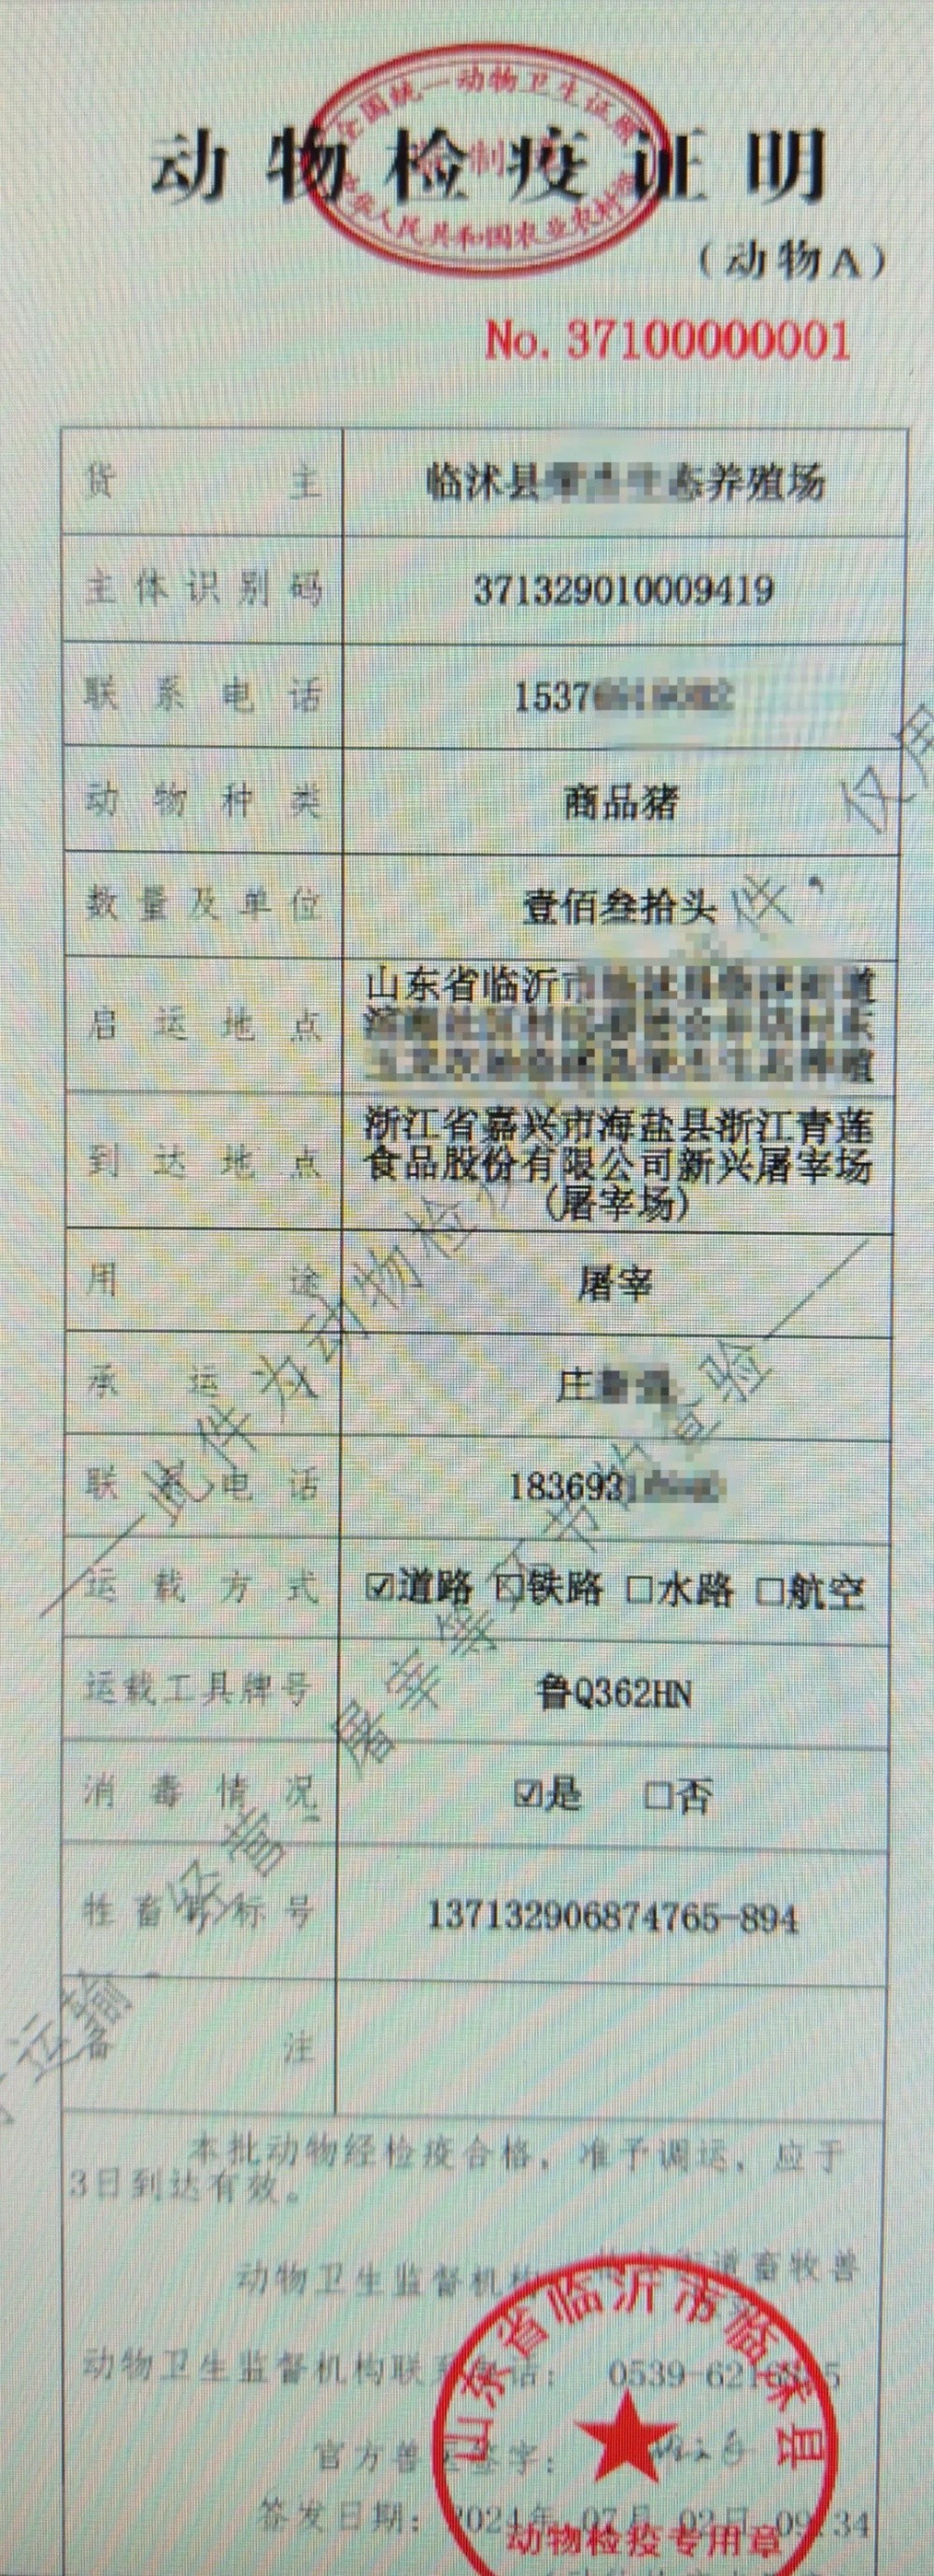 全国统一动物卫生证章
监制
中华人民共和国农业农村部
动物检疫证明
(动物A)
No. 37100000001
货主 临沭县 态养殖场
主体识别码 371329010009419
联系电话 1537
动物种类 商品猪
数量及单位 壹佰叁拾头
启运地点 山东省临沂市
到达地点 浙江省嘉兴市海盐县浙江青莲
食品股份有限公司新兴屠宰场
(屠宰场)
用途 屠宰
承运人 庄
联系电话 183693
运载方式 ☑道路 □铁路 □水路 □航空
运载工具牌号 鲁Q362HN
消毒情况 ☑是 □否
牲畜耳标号 137132906874765-894
备注
本批动物经检疫合格，准予调运，应于
3日到达有效。
动物卫生监督机构 街道畜牧兽
动物卫生监督机构联系电话： 0539-621 5
官方兽医签字：
签发日期：2024年 07月 02日 09:34
山东省临沂市临沭县
动物检疫专用章
此件为动物检 件，仅用
运输、经营、屠宰 查验